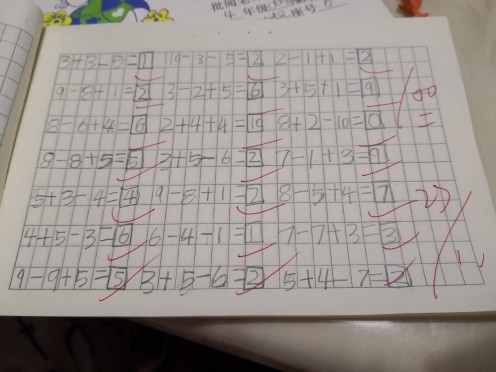 3+3-5=1 9-3-5=2 2-1+1=2
9-8+1=2 3-2+5=6 3+5+1=9
8-6+4=6 2+4+4=10 8+2-10=0
9-8+5=5 3+5-6=2 7-1+3=9
5+3-4=4 9-8+1=2 8-5+4=7
4+5-3=6 6-4-1=1 7-7+3=3
9-9+5=5 3+5-6=2 5+4-7=2
100